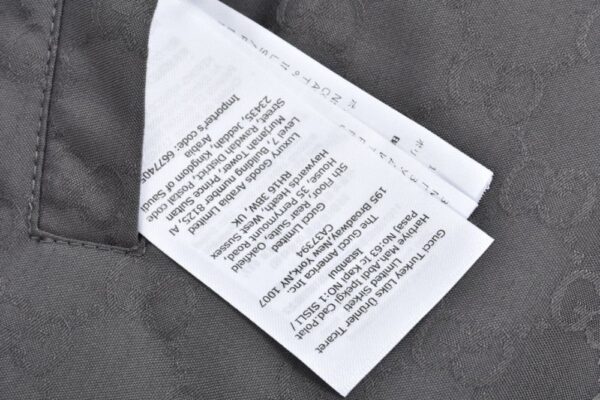 Gucci Turkey Lüks Ürünler Ticaret
Limited Sirketi
Harbiye Mah.Abdi Ipekçi Cad.Polat
Pasaj No:63 Ic Kapi NO:1 SISLI /
Istanbul
The Gucci America Inc.
195 Broadway,New York,NY 1007
CA37394
Gucci Limited
5th Floor, Rear Suite, Oakfield
House, 35 Perrymount Road,
Haywards Heath West Sussex
RH16 3BW, UK
Luxury Goods Arabia Limited
Level 7, Building number 8125, Al
Murjanah Tower, Prince Sultan
Street, Rawdah District, Postal code
23435, Jeddah, Kingdom of Saudi
Arabia
Importer's code: 6677405